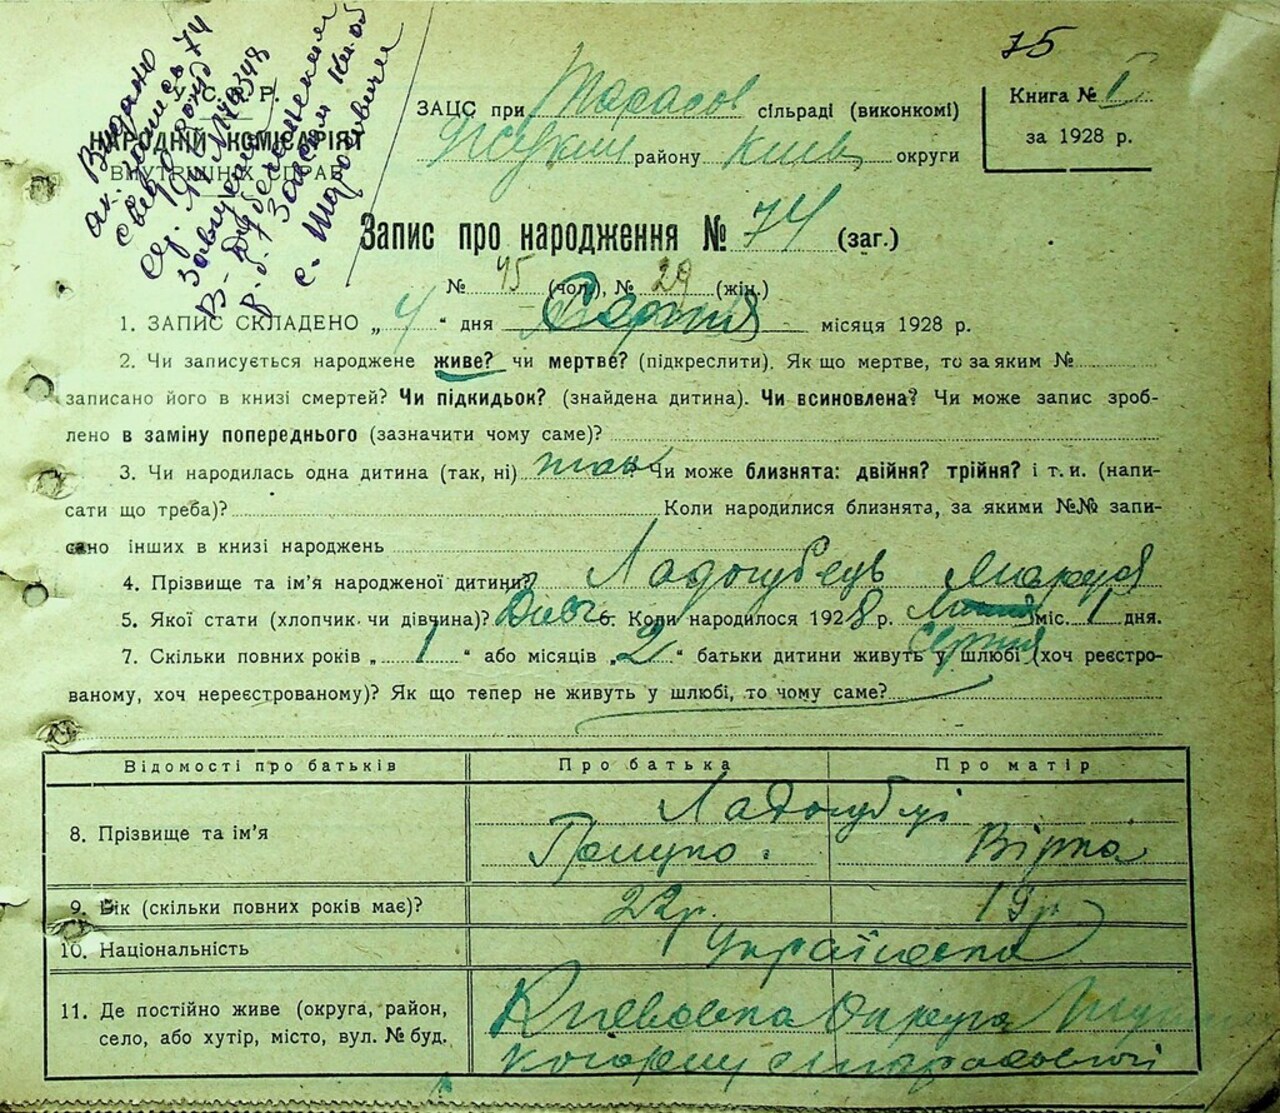 75
Видано
У. С. Р. Р.
НАРОДНІЙ КОМІСАРІЯТ
ВНУТРІШНІХ СПРАВ
ЗАЦС при Тарасов сільраді (виконкомі)
району Київ округи
Книга № I
за 1928 р.
Запис про народження № 74 (заг.)
№ 45 (чол.), № 29 (жін.)
1. ЗАПИС СКЛАДЕНО „ 4 “ дня Серпня місяця 1928 р.
2. Чи записується народжене живе? чи мертве? (підкреслити). Як що мертве, то за яким №
записано його в книзі смертей? Чи підкидьок? (знайдена дитина). Чи всиновлена? Чи може запис зроб-
лено в заміну попереднього (зазначити чому саме)?
3. Чи народилась одна дитина (так, ні) так Чи може близнята: двійня? трійня? і т. и. (напи-
сати що треба)? Коли народилися близнята, за якими №№ запи-
сано інших в книзі народжень
4. Прізвище та ім'я народженої дитини? Ладогубець Маруся
5. Якої стати (хлопчик чи дівчина)? Дівч 6. Коли народилося 1928 р. міс. 1 дня.
Серпня
7. Скільки повних років „ 1 “ або місяців „ 2 “ батьки дитини живуть у шлюбі (хоч реєстро-
ваному, хоч нереєстрованому)? Як що тепер не живуть у шлюбі, то чому саме?
Відомості про батьків Про батька Про матір
Ладогубці
8. Прізвище та ім'я Вірка
9. Вік (скільки повних років має)? 22р. 19р.
10. Національність Українська
11. Де постійно живе (округа, район, Київська Округа
село, або хутір, місто, вул. № буд.